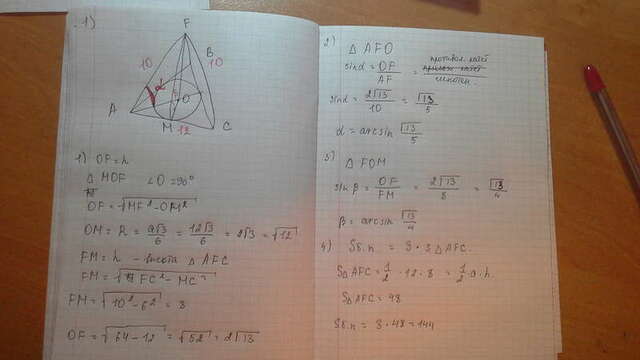 1)
F
10
B
10
α
A
O
M
12
C
1) OF = h
△ MOF ∠O = 90°
OF = √MF² - OM²
OM = R = a√3/6 = 12√3/6 = 2√3 = √12
FM = h - высота △ AFC
FM = √FC² - MC²
FM = √10² - 6² = 8
OF = √64 - 12 = √52 = 2√13
2) △ AFO
sin α = OF/AF = противол. катет/гипотен.
sin α = 2√13/10 = √13/5
α = arcsin √13/5
3) △ FOM
sin β = OF/FM = 2√13/8 = √13/4
β = arcsin √13/4
4) Sб.п = 3 · S△AFC.
S△AFC = 1/2 · 12 · 8 = 1/2 · a · h.
S△AFC = 48
Sб.п = 3 · 48 = 144